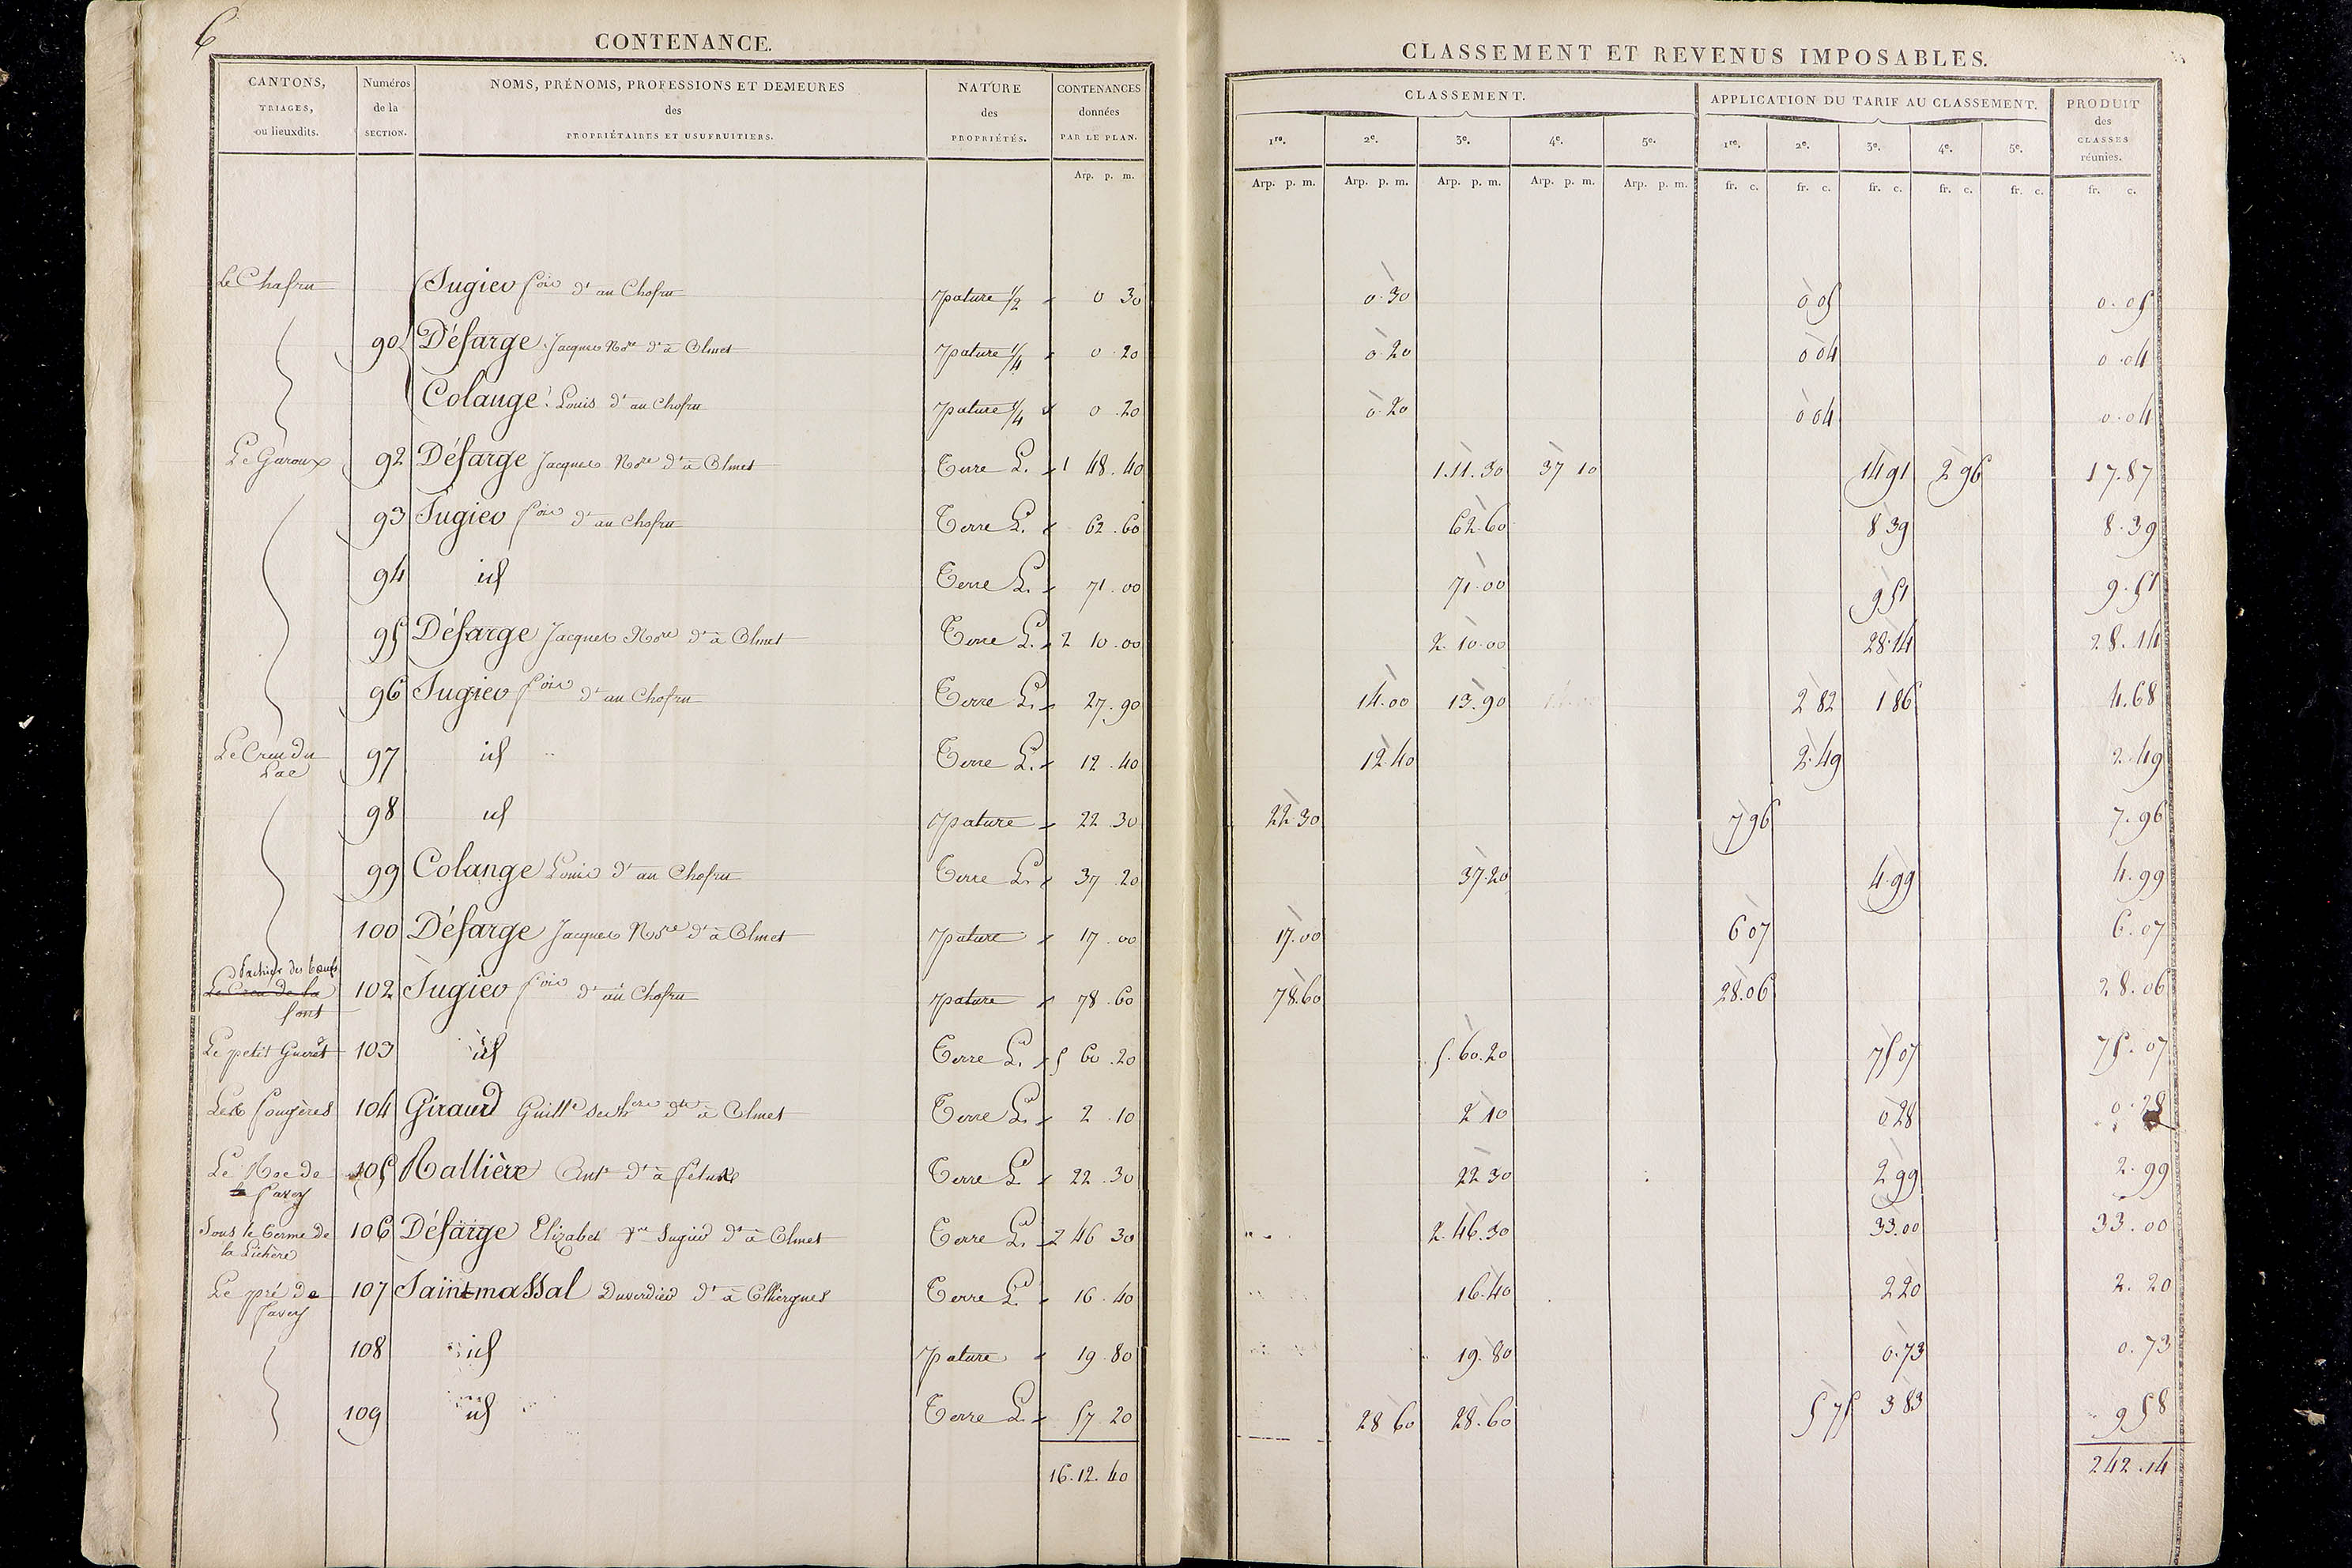 6
CONTENANCE.
CANTONS, TRIAGES, ou lieuxdits. Numéros de la SECTION. NOMS, PRÉNOMS, PROFESSIONS ET DEMEURES des PROPRIÉTAIRES ET USUFRUITIERS. NATURE des PROPRIÉTÉS. CONTENANCES données PAR LE PLAN.
Arp. p. m.
CLASSEMENT ET REVENUS IMPOSABLES.
CLASSEMENT. APPLICATION DU TARIF AU CLASSEMENT. PRODUIT des CLASSES réunies.
1re. 2e. 3e. 4e. 5e. 1re. 2e. 3e. 4e. 5e.
Arp. p. m. Arp. p. m. Arp. p. m. Arp. p. m. Arp. p. m. fr. c. fr. c. fr. c. fr. c. fr. c. fr. c.
Le Chafru Sugier fois dt au Chofru pature 1/2 0 30 0.30 0 05 0.05
90 Défarge Jacques Nore dt à Olmet pature 1/4 0 20 0.20 0 04 0.04
Colange Louis dt au Chofru pature 1/4 0 20 0.20 0 04 0.04
Le Garoux 92 Défarge Jacques Nore dt à Olmet Terre L. 1 48.40 1.11.30 37 10 14 91 2 96 17.87
93 Sugier fois dt au Chofru Terre L. 62.60 62.60 8 39 8.39
94 id Terre L. 71.00 71.00 9 51 9.51
95 Défarge Jacques Nore dt à Olmet Terre L. 2 10.00 2.10.00 28.14 28.14
96 Sugier fois dt au Chofru Terre L. 27.90 14.00 13.90 2 82 1 86 4.68
Le Creu du Lac 97 id Terre L. 12.40 12.40 2.49 2.49
98 id pature 22.30 22 30 7 96 7.96
99 Colange Louis dt au Chofru Terre L. 37.20 37.20 4.99 4.99
100 Défarge Jacques Nore dt à Olmet pature 17.00 17.00 6 07 6.07
des bœufs
Le Creu de la font 102 Sugier fois dt au Chofru pature 78.60 78.60 28.06 28.06
Le petit Gueret 103 id Terre L. 5 60.20 5.60.20 75 07 75.07
Les fougères 104 Giraud dt à Olmet Terre L. 2.10 2 10 0 28 0.28
Le Roc de la favey 105 Rallière Ante dt à Terre L. 22.30 22 30 2 99 2.99
Sous le terme de la Lichère 106 Défarge Elizabet ve Sugier dt à Olmet Terre L. 2 46 30 2.46.30 33.00 33.00
Le pré de favey 107 Saintmassal Duverdier dt à Terre L. 16.40 16.40 2 20 2.20
108 id pature 19.80 19.80 0.73 0.73
109 id Terre L. 57.20 28 60 28.60 5 75 3 83 9 58
16.12.40 242.14